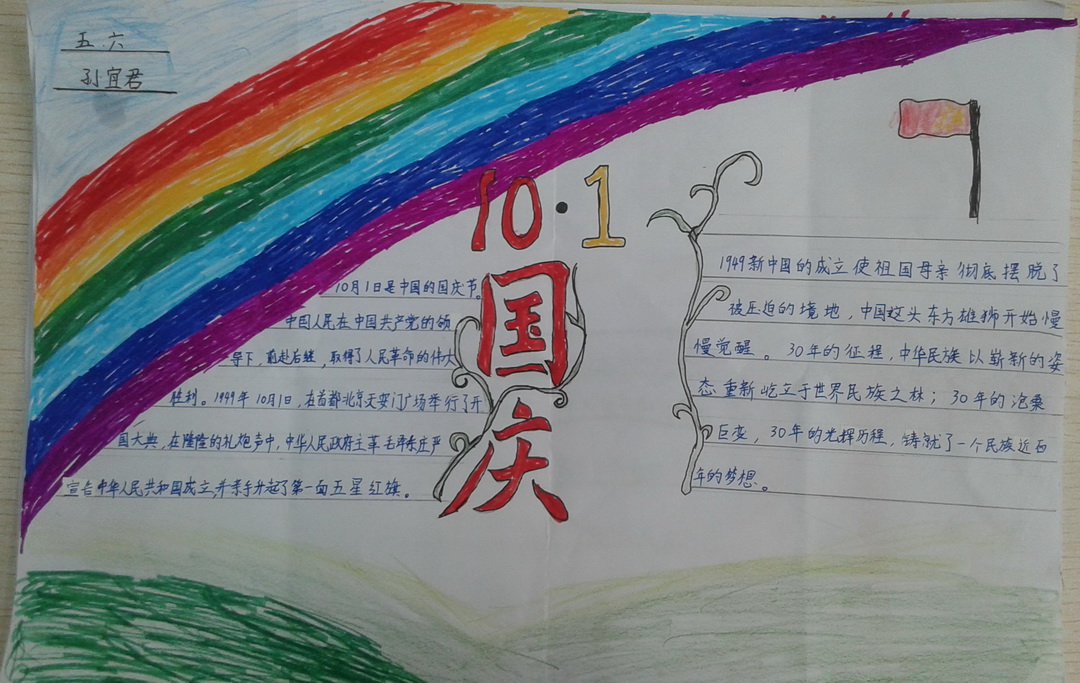 五.六
孙宜君
10·1
国庆
10月1日是中国的国庆节。
中国人民在中国共产党的领
导下,前赴后继,取得了人民革命的伟大
胜利。1949年10月1日,在首都北京天安门广场举行了开
国大典,在隆隆的礼炮声中,中华人民政府主革毛泽东庄严
宣告中华人民共和国成立,并亲手升起了第一面五星红旗。
1949新中国的成立使祖国母亲彻底摆脱了
被压迫的境地,中国这头东方雄狮开始慢
慢觉醒。30年的征程,中华民族以崭新的姿
态重新屹立于世界民族之林;30年的沧桑
巨变,30年的光挥历程,铸就了一个民族近百
年的梦想。